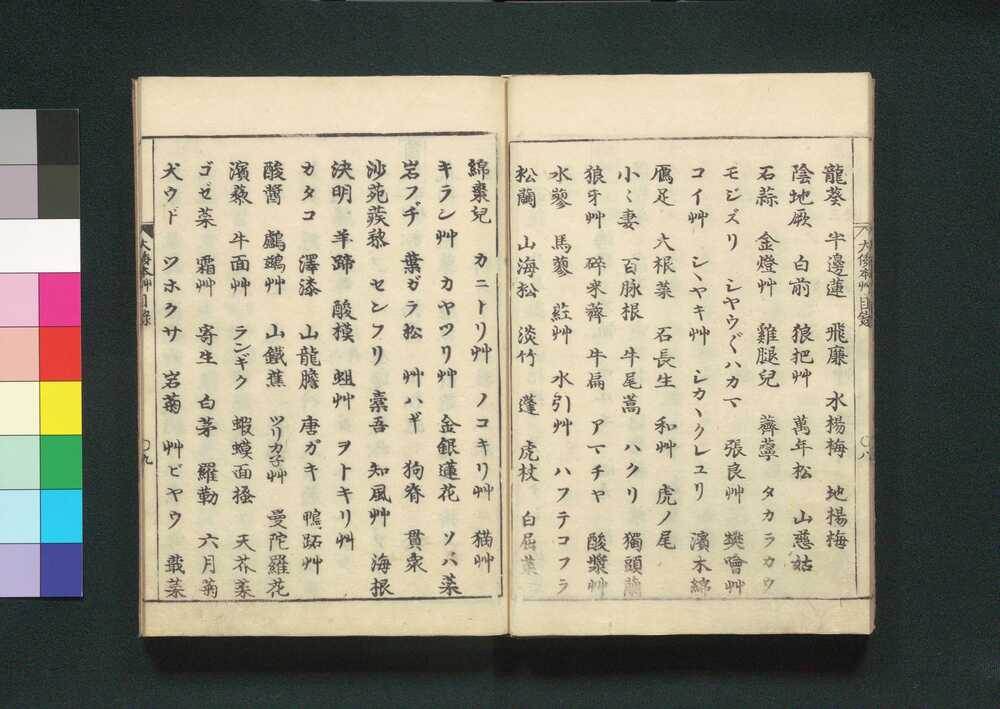 龍葵 半邊蓮 飛廉 水楊梅 地楊梅
陰地厥 白前 狼把艸 萬年松 山慈姑
石蒜 金燈艸 雞腿兒 薺薴 タカラカウ
モジズリ シヤウ〴〵ハカマ 張良艸 樊噲艸
コイ艸 シヽヤキ艸 シカヽクレユリ 濱木綿
鴈足 六根菜 石長生 和艸 虎ノ尾
小〻妻 百脉根 牛尾蒿 ハクリ 獨頭蘭
狼牙艸 碎米薺 牛扁 アマチヤ 酸漿艸
水蓼 馬蓼 葒艸 水引艸 ハフテコフラ
松蘭 山海松 淡竹 蓬 虎杖 白屈菜
大倭本艸目録 〇八
綿棗兒 カニトリ艸 ノコキリ艸 猫艸
キラン艸 カヤツリ艸 金銀蓮花 ソバ菜
岩フヂ 葉ガラ松 艸ハギ 狗脊 貫衆
沙苑蒺藜 センフリ 橐吾 知風艸 海根
決明 羊蹄 酸模 蛆艸 ヲトキリ艸
カタコ 澤漆 山龍膽 唐ガキ 鴨跖艸
酸醬 鸕鷀艸 山鐵蕉 ツリカ子艸 曼陀羅花
濱藜 牛面艸 ランギク 蝦蟆面掻 天芥菜
ゴゼ菜 霜艸 寄生 白茅 羅勒 六月菊
犬ウド ツホクサ 岩菊 艸ビヤウ 蕺菜
大倭本艸目録 〇九